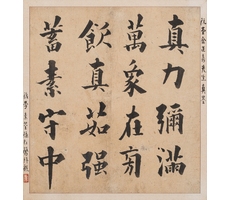 真力彌滿
萬象在旁
飲真茹强
蓄素守中